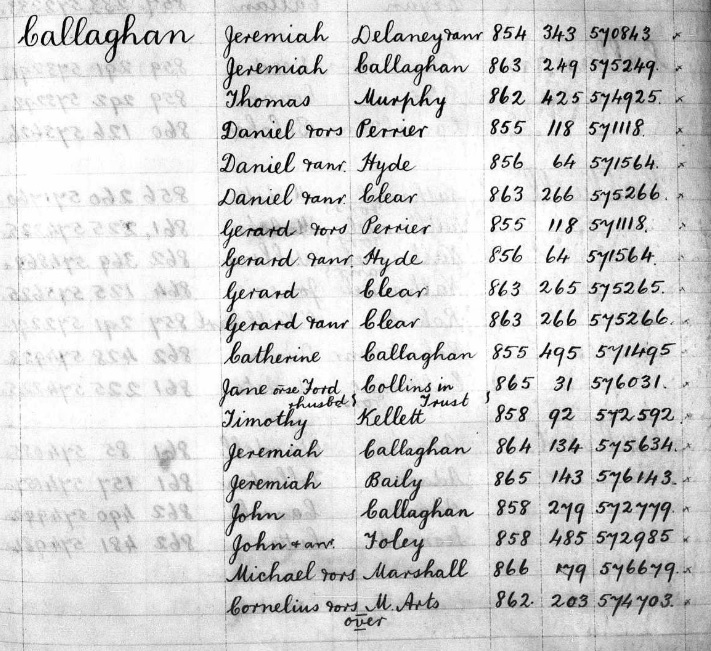 Callaghan Jeremiah Delaney &anr 854 343 570843 ×
Jeremiah Callaghan 863 249 575249. ×
Thomas Murphy 862 425 574925. ×
Daniel &ors Perrier 855 118 571118. ×
Daniel &anr. Hyde 856 64 571564. ×
Daniel &anr. Clear 863 266 575266. ×
Gerard &ors Perrier 855 118 571118. ×
Gerard &anr Hyde 856 64 571564. ×
Gerard Clear 863 265 575265. ×
Gerard &anr Clear 863 266 575266. ×
Catherine Callaghan 855 495 571495 ×
Jane orse Ford Collins in 865 31 576031. ×
&husbd } Trust }
Timothy Kellett 858 92 572592 ×
Jeremiah Callaghan 864 134 575634. ×
Jeremiah Baily 865 143 576143. ×
John Callaghan 858 279 572779. ×
John & anr. Foley 858 485 572985 ×
Michael &ors Marshall 866 179 576679. ×
Cornelius &ors M. Arts 862. 203 574703. ×
over